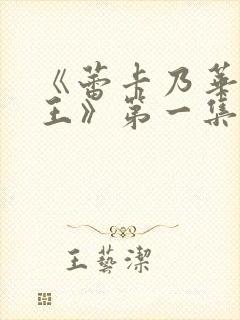 《蕾卡乃華
王》第一集
王藝潔